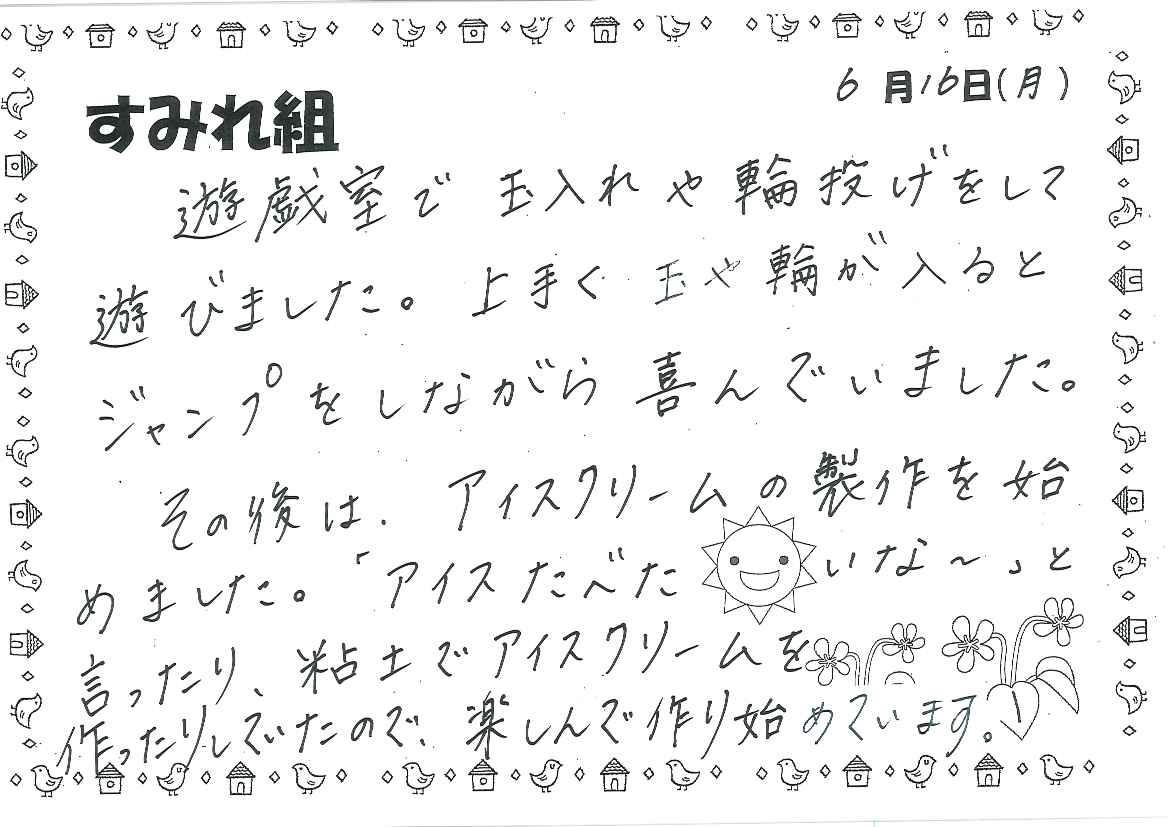 6月16日(月)
すみれ組
遊戯室で玉入れや輪投げをして
遊びました。上手く玉や輪が入ると
ジャンプをしながら喜んでいました。
その後は、アイスクリームの製作を始
めました。「アイスたべたいな〜」と
言ったり、粘土でアイスクリームを
作ったりしていたので、楽しんで作り始めています。